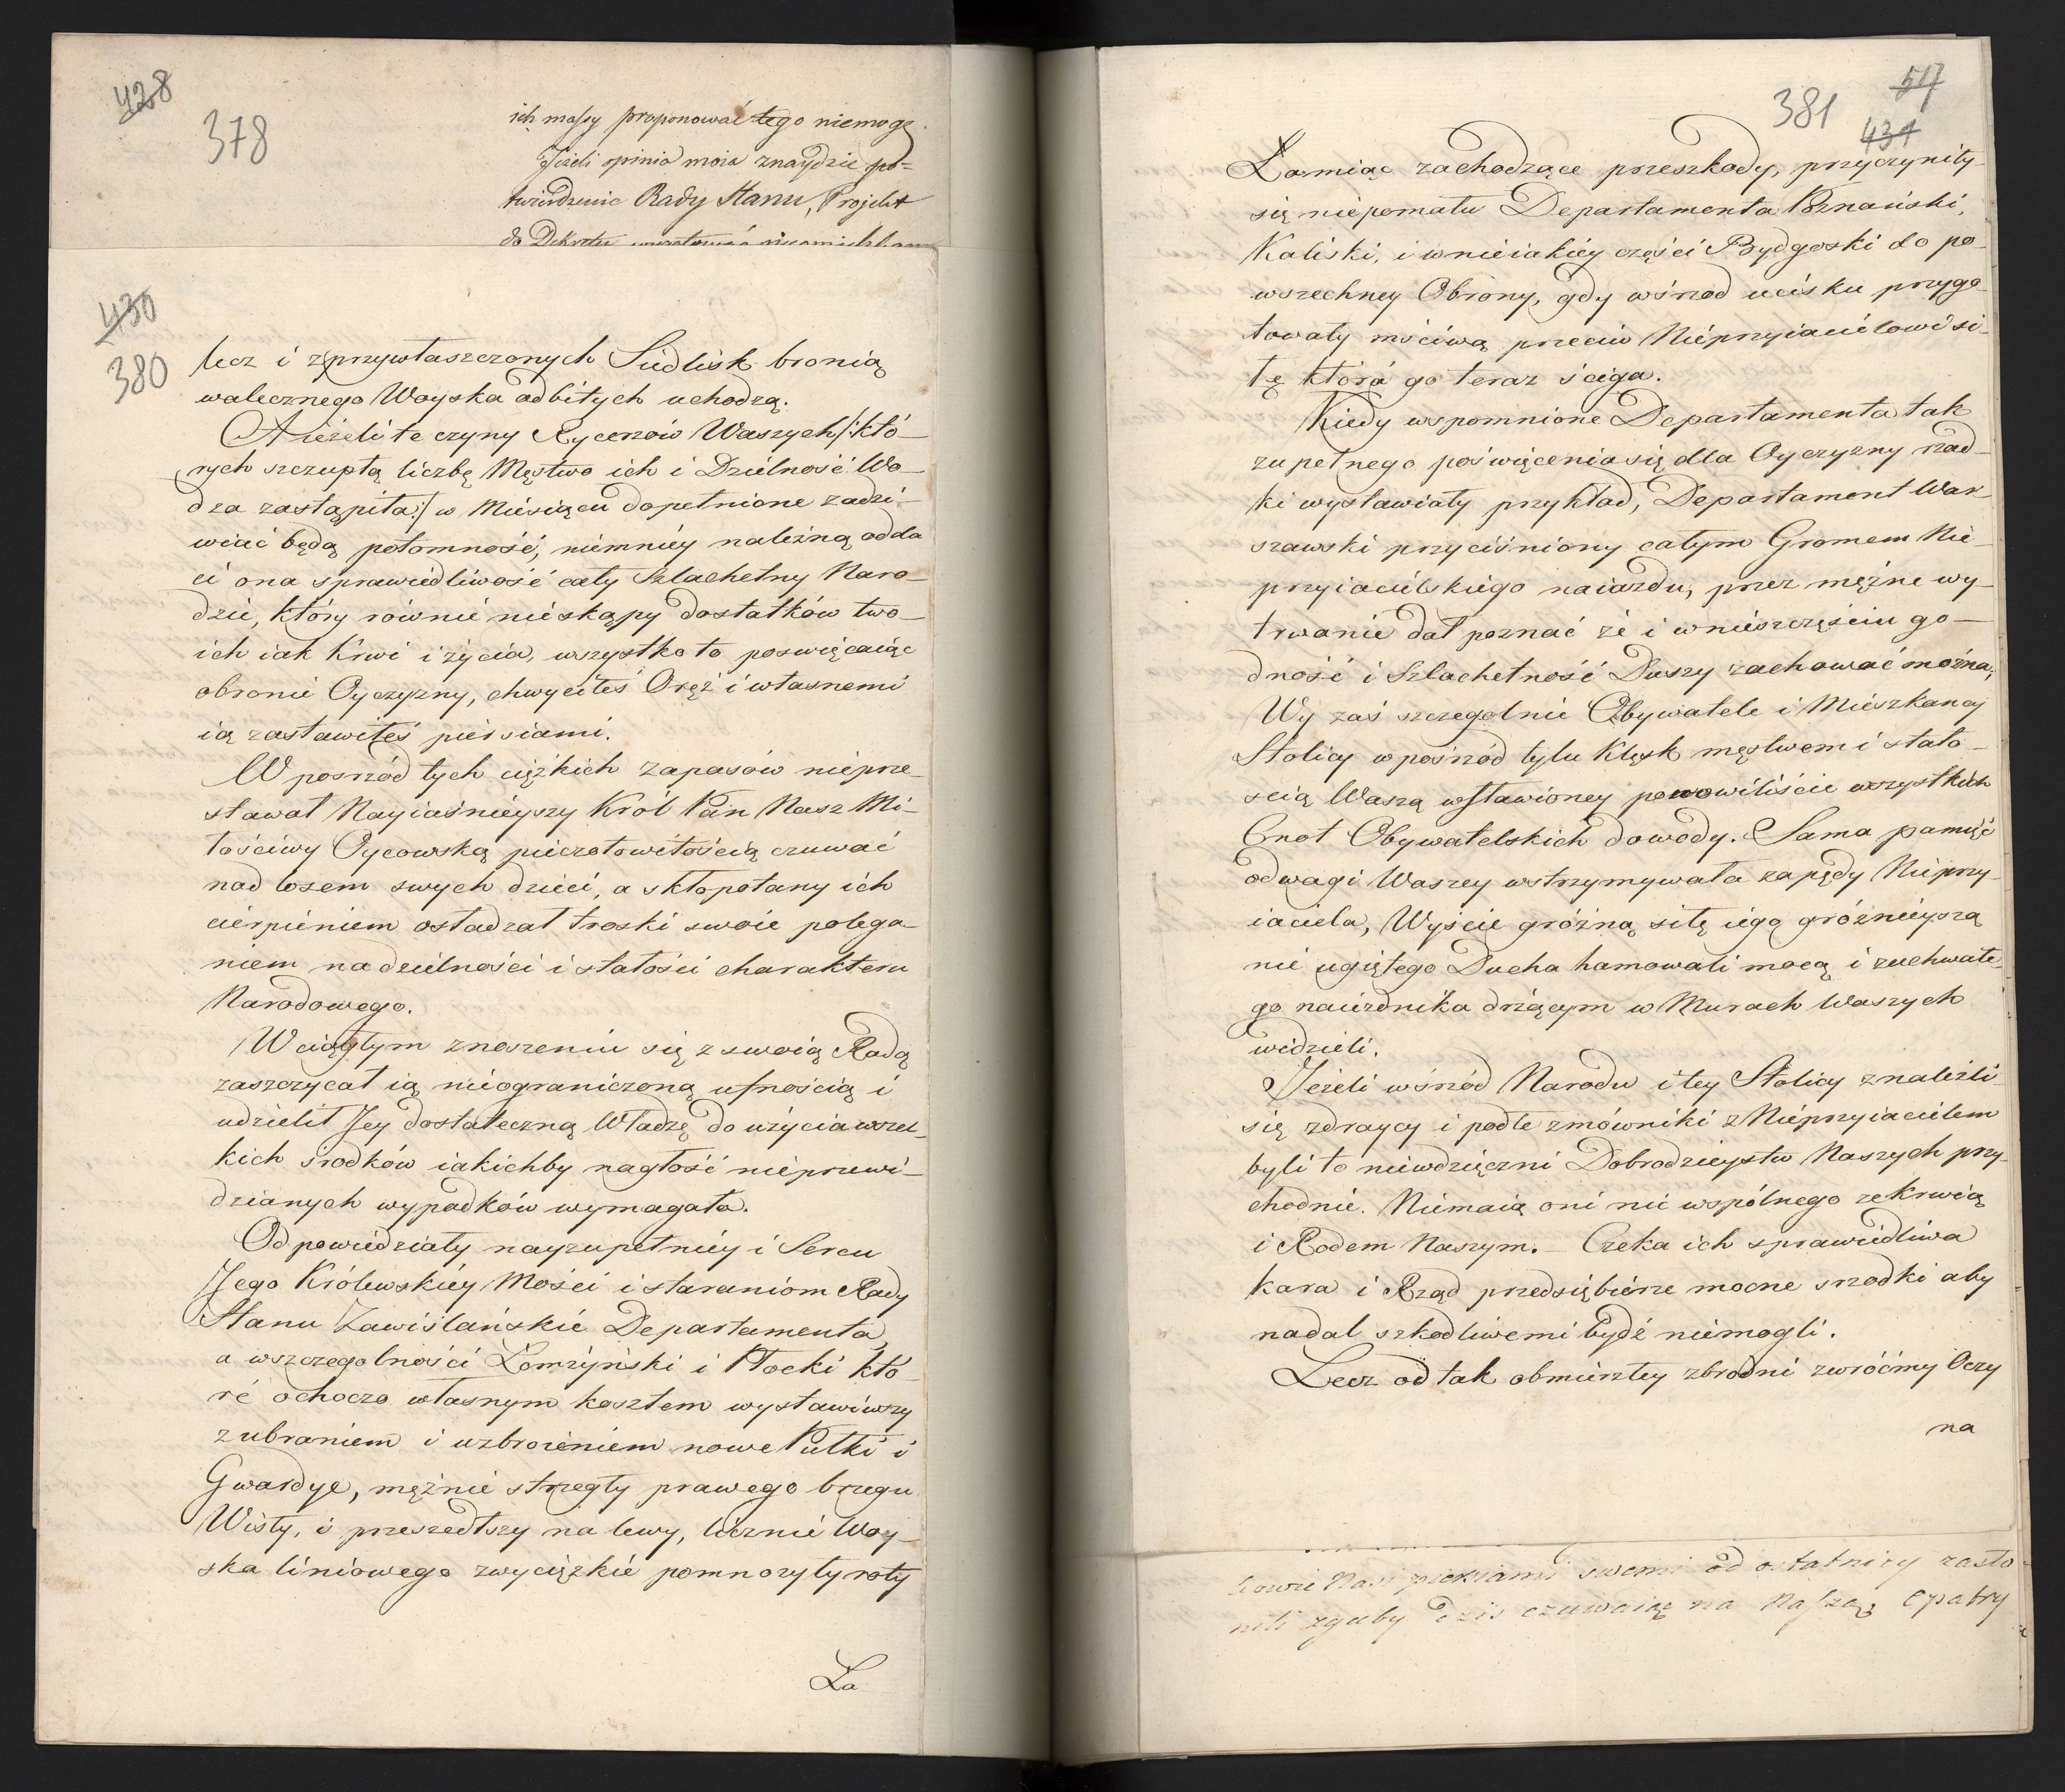 428
378
ich massy proponować tego niemogę.
Jeżeli opinia moia znaydzie po=
twierdzenie Rady Stanu, Projekt
do Dekretu
430
380
lecz i z przywłaszczonych Siedlisk bronią
walecznego Woyska odbitych uchodzą.
A ieżeli te czyny Rycerzów Waszych /: któ-
rych szczupłą liczbę Męstwo ich i Dzielność Wo-
dza zastąpiła :/ w Miesiącu dopełnione zadzi-
wiać będą potomność, niemniéy należną odda
ci ona sprawiedliwość cały Szlachetny Naro-
dzie, który równie nieskąpy dostatków two-
ich iak Krwi i życia, wszystko to poswięcaiąc
obronie Oyczyzny, chwyciłeś Oręż i własnemi
ią zastawiłeś piersiami.
W posrzód tych ciężkich zapasów nieprze-
stawał Nayiaśnieyszy Król Pan Nasz Mi-
łościwy Oycowską pieczołowitością czuwać
nad losem swych dzieci, a skłopotany ich
cierpieniem osładzał troski swoie polega-
niem na dzielności i stałości charakteru
Narodowego.
W ciągłym znoszeniu się z swoią Radą
zaszczycał ią nieograniczoną ufnością i
udzielił Jey dostateczną Władzę do użycia wszel-
kich srodków iakichby nagłość nieprzewi-
dzianych wypadków wymagała.
Odpowiedziały nayzupełniéy i Sercu
Jego Królewskiéy Mości i staraniom Rady
Stanu Zawiślańskie Departamenta,
a wszczegolności Łomżyński i Płocki któ-
ré ochoczo własnym kosztem wystawiwszy
z ubraniem i uzbroieniem nowe Pułki i
Gwardye, mężnie strzegły prawego brzegu
Wisły, i przeszedłszy na lewy, licznie Woy-
ska liniowego zwycięzkie pomnożyły roty
Ła
517
381
431
Łamiąc zachodzące przeszkody, przyczyniły
się niepomału Departamenta Poznański,
Kaliski, i w nieiakiéy części Bydgoski do po-
wszechney Obrony, gdy wśrzod ucisku przygo-
towały mściwą przeciw Nieprzyiacielowi si-
łę która go teraz ściga.
Kiedy wspomnione Departamenta tak
zupełnego poświęcenia się dla Oyczyzny rzad-
ki wystawiały przykład, Departament War-
szawski przyciśniony całym Gromem Nie-
przyiacielskiego naiazdu, przez mężne wy-
trwanie dał poznać że i w nieszczęściu go-
dność i Szlachetność Duszy zachować można;
Wy zaś szczegolnie Obywatele i Mieszkancy
Stolicy w pośrzód tylu klęsk męstwem i stało-
scią Waszą wsławioney ponowiliście wszystkich
Cnot Obywatelskich dowody. Sama pamięć
odwagi Waszey wstrzymywała zapędy Nieprzy-
iaciela, Wyście gróźną siłę iego gróźnieyszą
nie ugiętego Ducha hamowali mocą i zuchwałe-
go naiezdnika drżącym w Murach Waszych
widzieli.
Jeżeli wśrzód Narodu i tey Stolicy znaleźli
się zdraycy i podłe zmówniki z Nieprzyiacielem
byli to niewdzięczni Dobrodzieystw Naszych przy-
chodnie. Niemaią oni nic wspólnego ze krwią
i Rodem Naszym. Czeka ich sprawiedliwa
kara i Rząd przedsiębierze mocne srzodki aby
nadal szkodliwemi bydź niemogli.
Lecz od tak obmierzłey zbrodni zwróćmy Oczy
na
kowie Nasi piersiami swemi od ostatniey zasło-
nili zguby dzis czuwaiąc na Naszą Opatrz